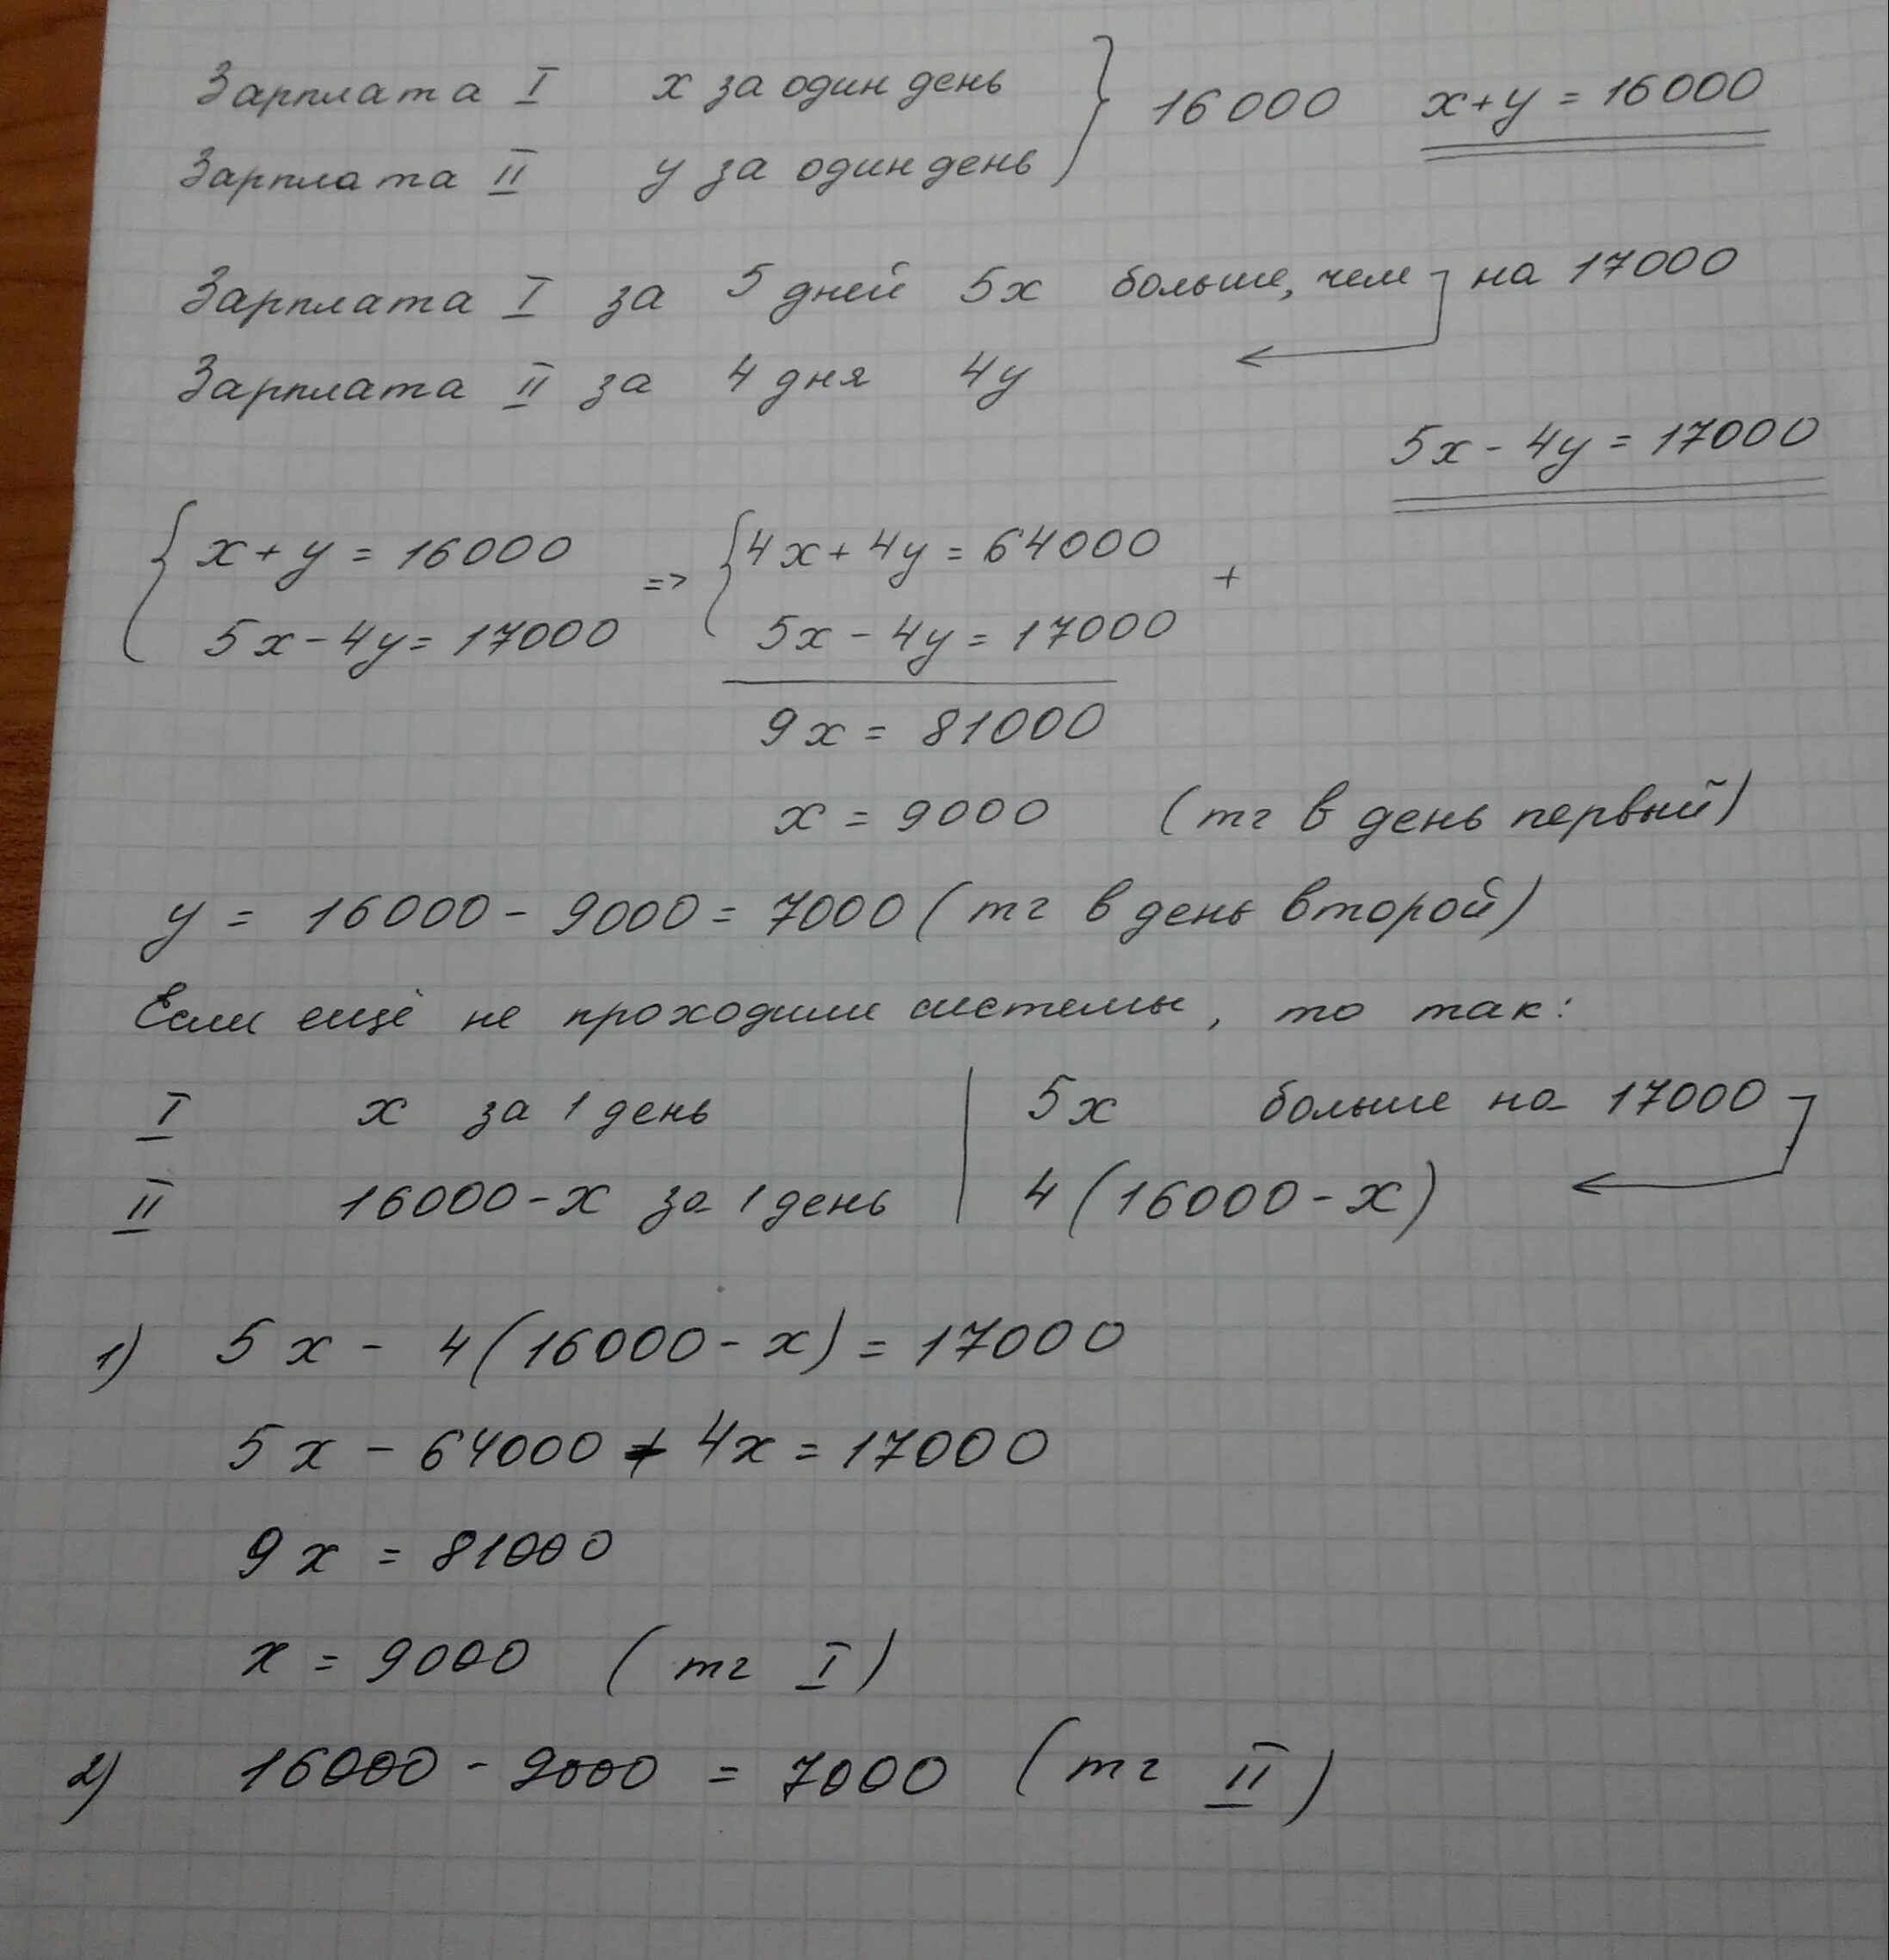 Зарплата I x за один день } 16000 x+y = 16000
Зарплата II y за один день
Зарплата I за 5 дней 5x больше, чем на 17000
Зарплата II за 4 дня 4y
5x - 4y = 17000
{ x + y = 16000 => { 4x + 4y = 64000 +
5x - 4y = 17000 5x - 4y = 17000
9x = 81000
x = 9000 (тг в день первый)
y = 16000 - 9000 = 7000 (тг в день второй)
Если ещё не проходили системы, то так:
I x за 1 день | 5x больше на 17000
II 16000-x за 1 день | 4(16000-x)
1) 5x - 4(16000-x) = 17000
5x - 64000 + 4x = 17000
9x = 81000
x = 9000 (тг I)
2) 16000 - 9000 = 7000 (тг II)